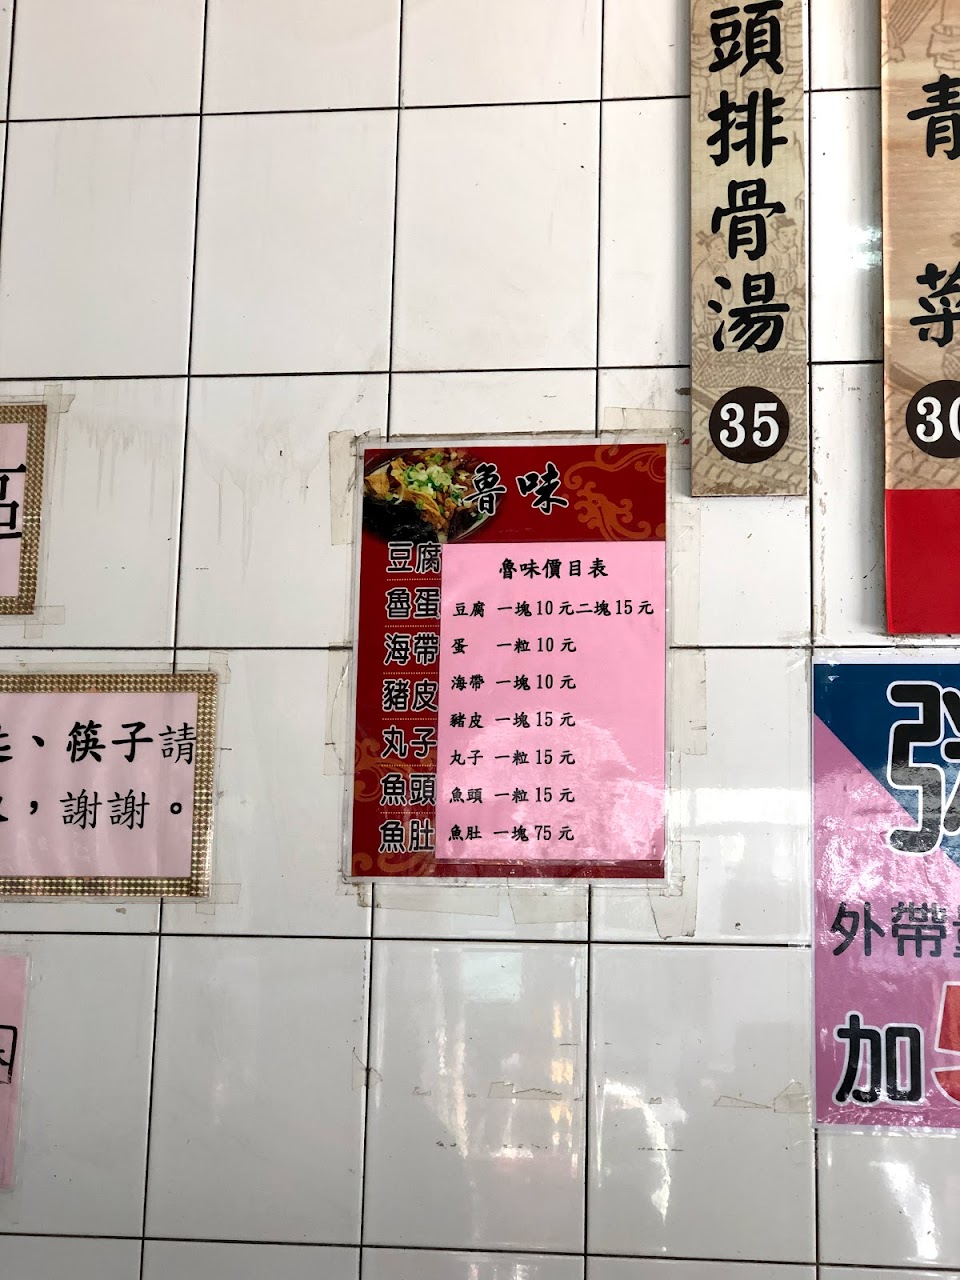 頭排骨湯
35
青菜
30
魯味
豆腐
魯蛋
海帶
豬皮
丸子
魚頭
魚肚
魯味價目表
豆腐 一塊10元二塊15元
蛋 一粒10元
海帶 一塊10元
豬皮 一塊15元
丸子 一粒15元
魚頭 一粒15元
魚肚 一塊75元
區
、筷子請
，謝謝。
外帶
加5